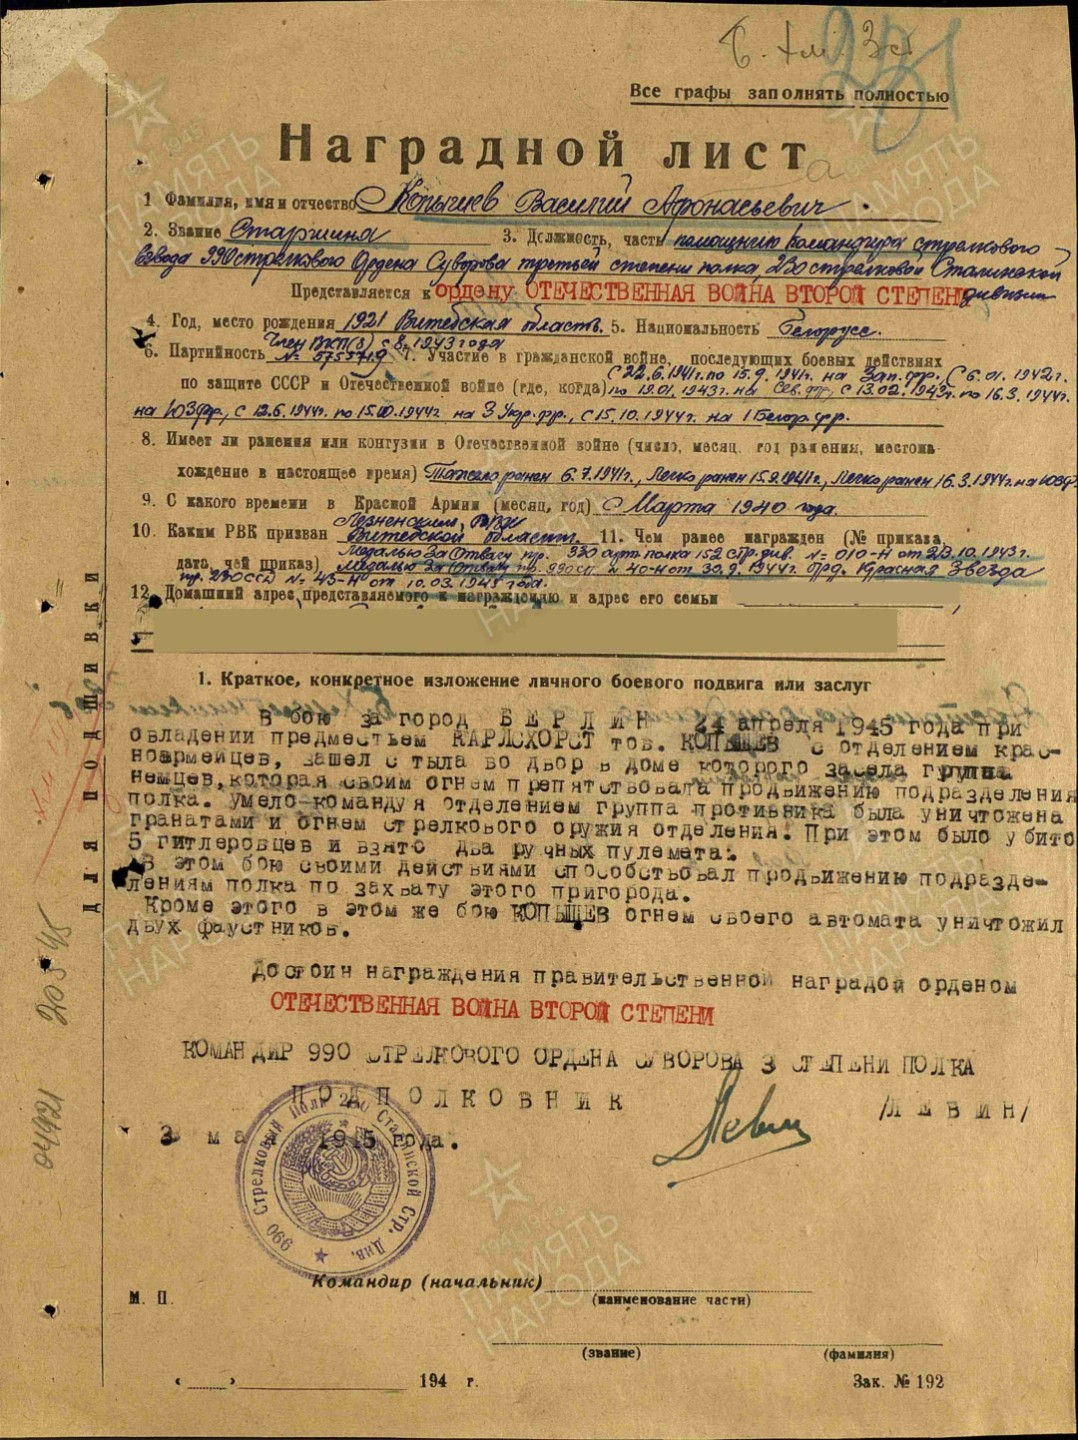 231
Все графы заполнять полностью
Наградной лист
1 Фамилия, имя и отчество Копышев Василий Афонасьевич.
2. Звание Старшина 3. Должность, часть помощник командира стрелкового
взвода 990 стрелкового Ордена Суворова третьей степени полка, 230 стрелковой Сталинской
Представляется к ордену ОТЕЧЕСТВЕННАЯ ВОЙНА ВТОРОЙ СТЕПЕНИ дивизии
4. Год, место рождения 1921 Витебская область. 5. Национальность Белорусс.
Член ВКП(б) с 8.1943 года
6. Партийность № 5755719 7. Участие в гражданской войне, последующих боевых действиях
с 22.6.1941г. по 15.9.1941г. на Зап. фр., с 6.01.1942г.
по защите СССР и Отечественной войне (где, когда) по 19.01.1943г. на Сев. фр., с 13.02.1943г. по 16.3.1944г.
на ЮЗфр., с 12.6.1944г. по 15.10.1944г. на 3 Укр. фр., с 15.10.1944г. на 1 Белор. фр.
8. Имеет ли ранения или контузии в Отечественной войне (число, месяц, год ранения, местона-
хождение в настоящее время) Тяжело ранен 6.7.1941г., Легко ранен 15.9.1941г., Легко ранен 16.3.1944г. на ЮЗФ.
9. С какого времени в Красной Армии (месяц, год) с Марта 1940 года.
Лезненским РВК
10. Каким РВК призван Витебской област. 11. Чем ранее награжден (№ приказа,
Медалью За Отвагу пр. 330 арт. полка 152 стр. див. № 010-Н от 23.10.1943г.
дата, чей приказ) Медалью За Отвагу пр. 990 СП № 40-Н от 30.9.1944г. Орд. Красная Звезда
пр. 230 СД № 43-Н от 10.03.1945 года.
12. Домашний адрес представляемого к награждению и адрес его семьи
1. Краткое, конкретное изложение личного боевого подвига или заслуг
В бою за город БЕРЛИН 24 апреля 1945 года при
овладении предместьем КАРЛСХОРСТ тов. КОПЫШЕВ с отделением крас-
ноармейцев, зашел с тыла во двор в доме которого засела группа
немцев, которая своим огнем препятствовала продвижению подразделения
полка. Умело-командуя отделением группа противника была уничтожена
гранатами и огнем стрелкового оружия отделения. При этом было убито
5 гитлеровцев и взято два ручных пулемета.
В этом бою своими действиями способствовал продвижению подразде-
лениям полка по захвату этого пригорода.
Кроме этого в этом же бою КОПЫШЕВ огнем своего автомата уничтожил
двух фаустников.
Достоин награждения правительственной наградой орденом
ОТЕЧЕСТВЕННАЯ ВОЙНА ВТОРОЙ СТЕПЕНИ
КОМАНДИР 990 СТРЕЛКОВОГО ОРДЕНА СУВОРОВА 3 СТЕПЕНИ ПОЛКА
ПОДПОЛКОВНИК /ЛЕВИН/
Левин
3 мая 1945 года.
990 Стрелковый Полк 230 Сталинской Стр. Див.
Командир (начальник)
М. П. (наименование части)
(звание) (фамилия)
« » 194 г. Зак. № 192
для подшивки
04921 20 5 45
ПАМЯТЬ НАРОДА